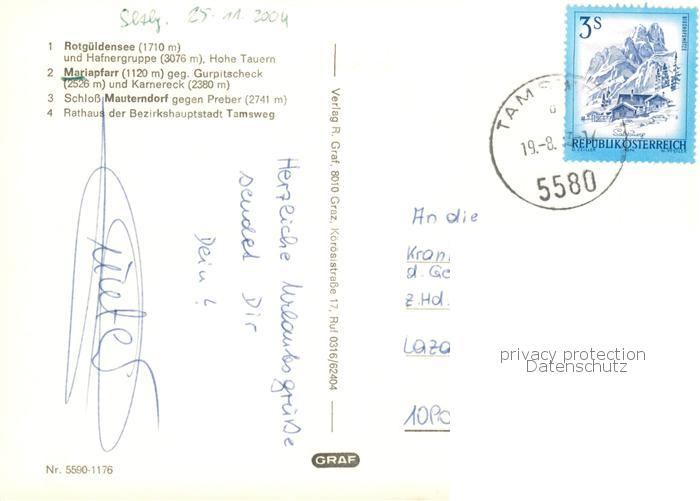 Sbg. 25.11.2004
1 Rotgüldensee (1710 m)
und Hafnergruppe (3076 m), Hohe Tauern
2 Mariapfarr (1120 m) geg. Gurpitscheck
(2526 m) und Karnereck (2380 m)
3 Schloß Mauterndorf gegen Preber (2741 m)
4 Rathaus der Bezirkshauptstadt Tamsweg
Herzliche Urlaubsgrüße
sendet Dir
Dein
Verlag R. Graf, 8010 Graz, Körösistraße 17, Ruf 0316/62404
GRAF
Nr. 5590-1176
3 S
REPUBLIK ÖSTERREICH
TAMS
19.-8.
5580
An die
Kran
d. Ge
z.Hd.
Laza
privacy protection
Datenschutz